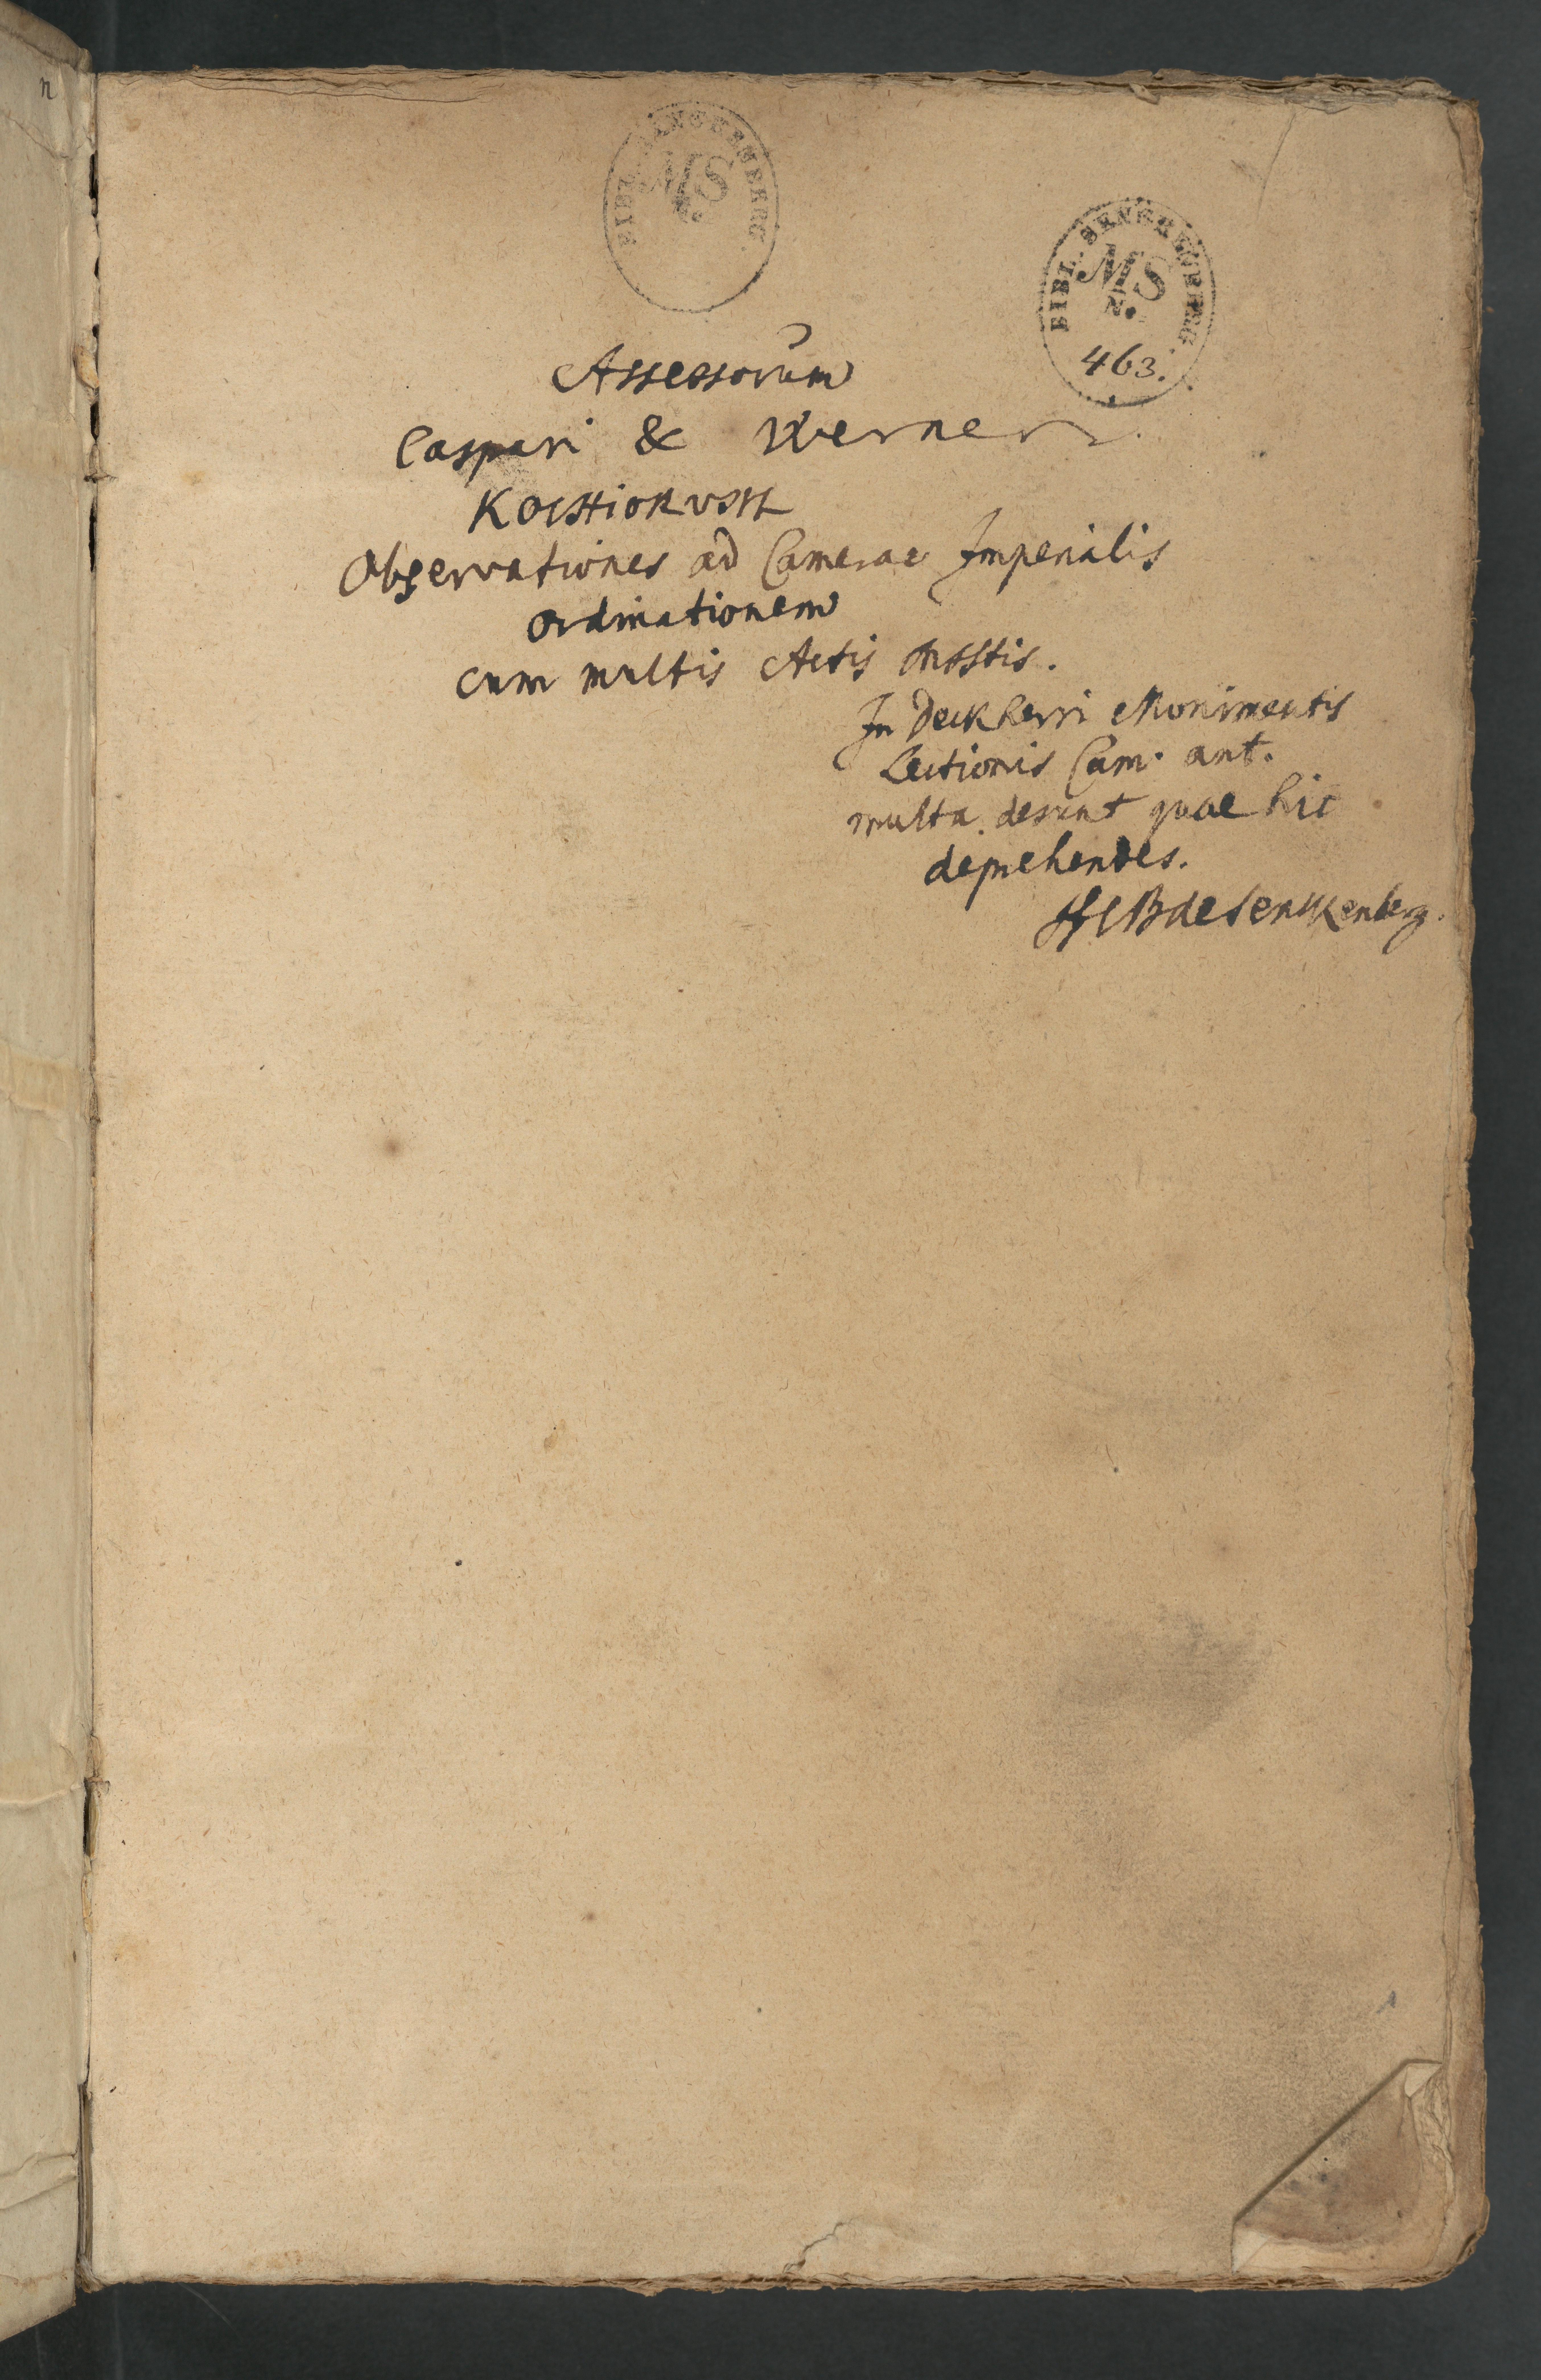 n
BIBL. SENCKENBERG.
MS
N.
BIBL. SENCKENBERG.
MS
N.
463.
Assessorum
Caspari & Werneri
Observationes ad Camerae Imperialis
ordinationem
cum multis Actis
In Deckherri Monimentis
Lectionis Cam. ant.
multa desunt quae hic
deprehendes.
HCB de Senckenberg.